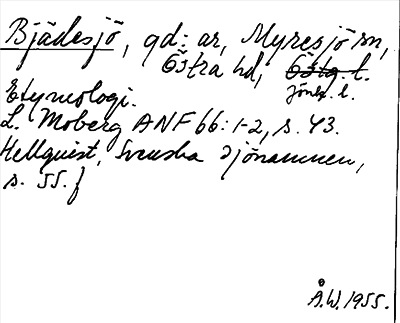 Bjädesjö, gd: ar, Myresjö sn,
Östra hd, Östg. l.
Jönk. l.
Etymologi.
L. Moberg ANF 66:1-2, s. 43.
Hellquist, Svenska sjönamnen,
s. 55. f
Å.W. 1955.